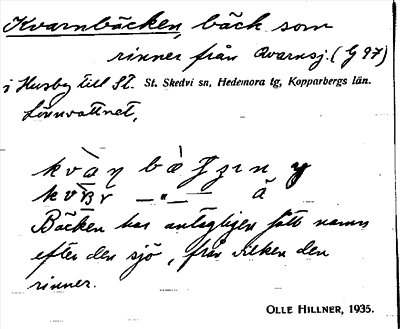 Kvarnbäcken, bäck som
rinner från Qvarnsj. (G 97)
i Husby till St. St. Skedvi sn, Hedemora tg, Kopparbergs län.
Lönnvattnet,
Bäcken har antagligen fått namn
efter den sjö, från vilken den
rinner.
OLLE HILLNER, 1935.